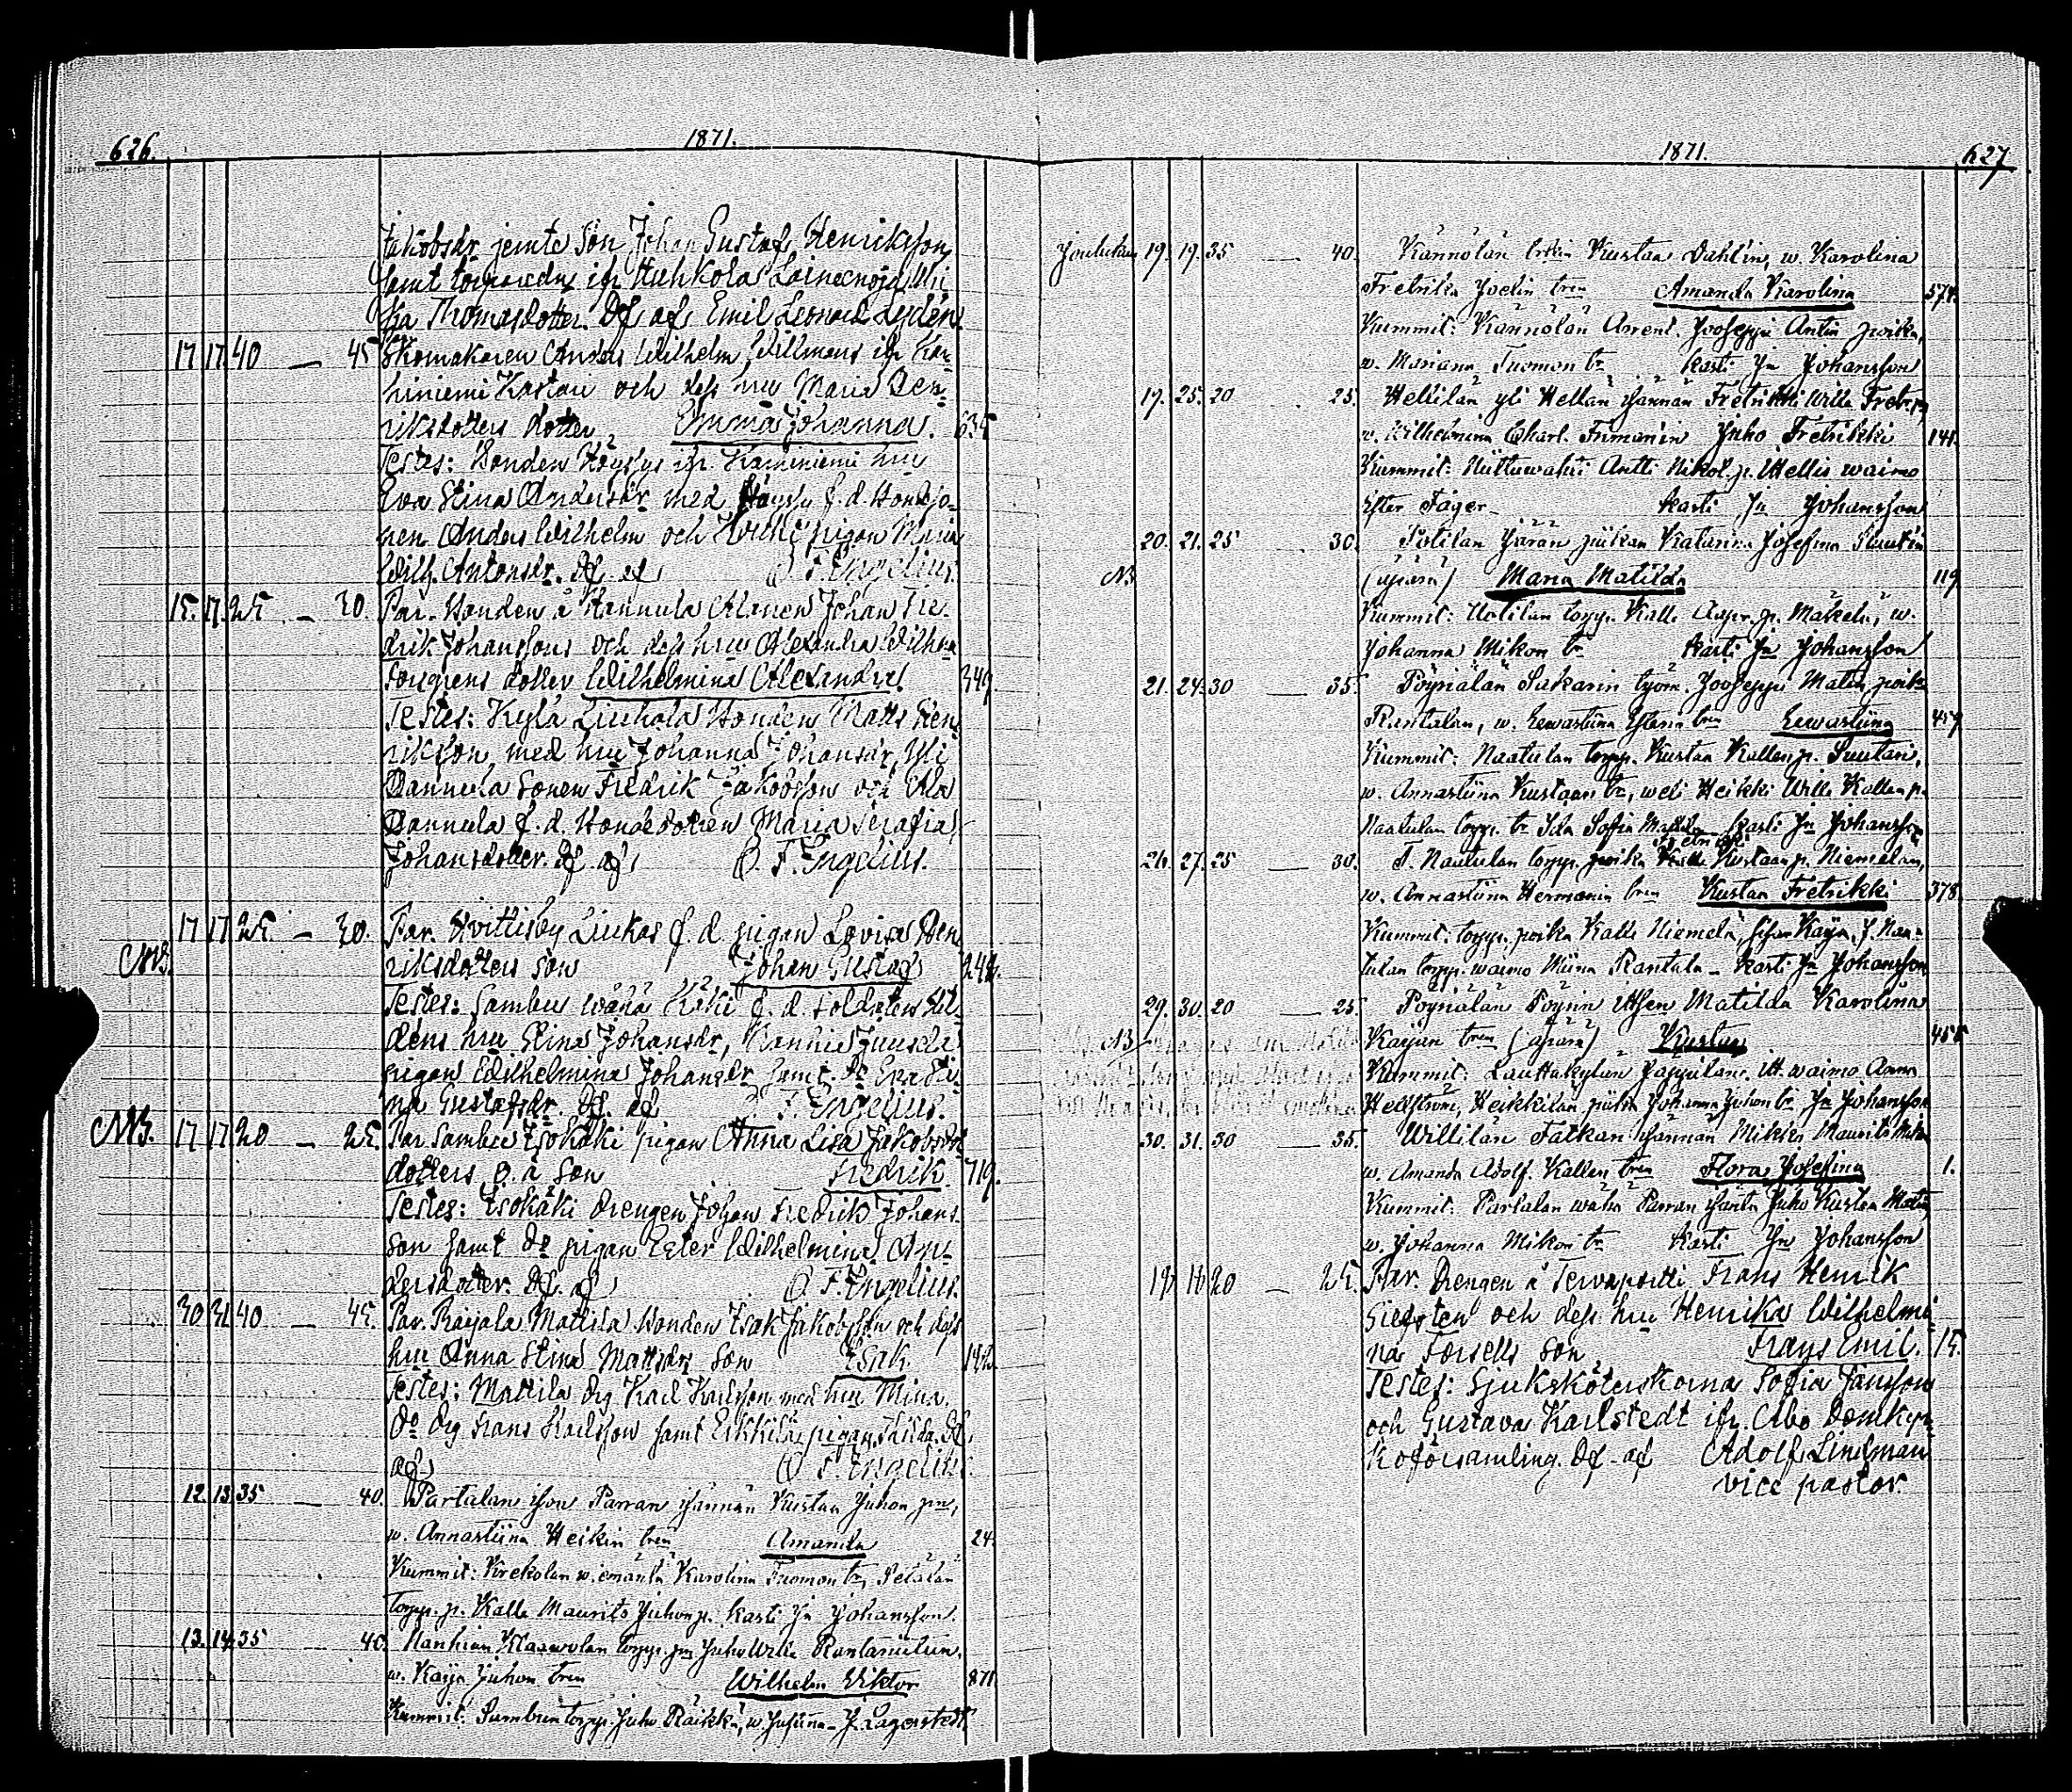 626.
1871.
Jakobsdr jemte Son Johan Gustaf Henriksson
samt torparedr ifr Huhkola Lainenoja Ulri
ka Thomasdotter. Df af Emil Leonard Lydén.
17 17 40 — 45 Skomakaren Anders Wilhelm Willmans ifr Kar
hiniemi Kastari och dess hru Maria Hen-
riksdotters dotter Emma Johanna. 634
Testes: Bonden Höyssys ifr. Karhiniemi hru
Eva Stina Andersdr med Höyssy f. d. Bondso-
nen Anders Wilhelm och pigan Maria
Wilh. Antonsdr. Df. af O. F. Engelius.
15. 17. 25 — 30. Par. Bonden å Hannula Alanen Johan Fre-
drik Johanssons och dess hru Alexandra Wilhma
Forsgrens dotter Wilhelmina Alexandra. 349.
Testes: Kylä Liuhala Bonden Matts Hen
riksson, med hru Johanna Johansdr, Yli
Hannula Sonen Fredrik Jakobsson och Ala
Hannula f. d. Bondedottren Maria Serafia
Johansdotter. Df af O. F. Engelius.
17 17 25 — 30. Par. Hvittisby Liukas f. d. pigan Lovisa Hen
NB. riksdotters son Johan Gustaf 244.
Testes: Sambu wähä Käki f. d. Soldaten
dens hru Stina Johansdr,
pigan Wilhelmina Johansdr samt Do Eva Sti-
na Gustafsdr. Df. af O. F. Engelius.
NB. 17 17 20 — 25. Par Sambu Isokäki pigan Anna Lisa Jakobs
dotters o. ä Son Fredrik. 719.
Testes: Isokäki Drengen Johan Fredrik Johans
son samt Do pigan Ester Wilhelmina An-
dersdotter. Df. af O. F. Engelius.
30 31 40 — 45. Par. Raijala Mattila Bonden Isak Jakobsson och dess
hru Anna Stina Mattsdr Son Isak. 142
Testes: Mattila drg Karl Karlsson med hru Mina,
Do drg Frans Karlsson samt Erkkilä pigan Df,
af O. F. Engelius.
12. 13. 35 — 40. Partalan ison Parran isännän Kustaa Juhon pn,
w. Annastiina Heikin tren Amanda 24.
Kummit: Krekolan w. emäntä Karolina Tuomon tr,
torpp. p. Kalle Maurits Juhonp. kasti Jn Johansson.
13. 14. 35 — 40. torpp. pn Juho Wille Rantaniitun,
w. Kaija Juhon tren Wilhelm Viktor 871.
Kummit: Sambun torpp. Juho Räikkä, w. Justiina – J. Lagerstedt
1871.
627
Joulukuu 19. 19. 35 — 40. Kännölän Kustaa Dahlin, w. Karolina
Fretrika tren Amanda Karolina 574.
Kummit: Kännölän Arrent. Jooseppi Antin poika,
w. Mariana Tuomon tr kasti Jn Johansson
19. 25. 20 25. Hellilän yli Hellän isännän Fretrikki Wille
w. Wilhelmina Charl. Frimanin Juho Fretrikki 141.
Kummit: Antti Nikol. p. Mellis waimo
Ester Fager – kasti Jn Johansson
20. 21. 25 30. piikan Katarina Josefina
NB (äpärä) Maria Matilda 119
Kummit: torpp. Kalle p. Mäkelä, w.
Johanna Mikon tr kasti Jn Johansson
21. 24. 30 — 35. Pöyriälän Sakarin työm. Joosseppi Matin poika
Rantalan, w. Eewastiina tren Eewastiina 457
Kummit: Naatulan torpp. Kustaa Kallenp. Suutari,
w. Annastiina Kustaan tr, weli Heikki Wille Kallen p.
Naatulan torpp. tr Ida Sofia Matilda – kasti Jn Johansson
26. 27. 25 — 30. F. Naatulan torpp. poika Kustaan p. Niemelän,
w. Annastiina Hermanin tren Kustaa Fretrikki 378.
Kummit: torpp. poika Kalle Niemelä, sisar Kaija, F. Naa-
tulan torpp. waimo Miina Rantala – kasti Jn Johansson
29. 30. 20 — 25. Pöyriälän Itsen Matilda Karolina
NB Kaijan tren (äpärä) Kustaa 455
Kummit: Lauttakylän Itt. waimo Anna
Hellström, Heikkilän piika Johanna Juhon tr Jn Johansson
30. 31. 30 — 35. Willilän isännän Mikki Maurits
w. Amanda Adolf. Kallen tren Flora Josefina 1.
Kummit: Partalan wähä Parran isäntä Juho Kustaa Matin
w. Johanna Mikon tr kasti Jn Johansson
20 — 25. Par. Drengen å Tervapirtti Frans Henrik
Siegsten och dess hru Henrika Wilhelmi
na Forsells Son Frans Emil. 15.
Testes: Sjuksköterskorna Sofia Jansson
och Gustava Karlstedt ifr. Åbo Domkyr-
koförsamling. Df. af Adolf Lindman
vice pastor.